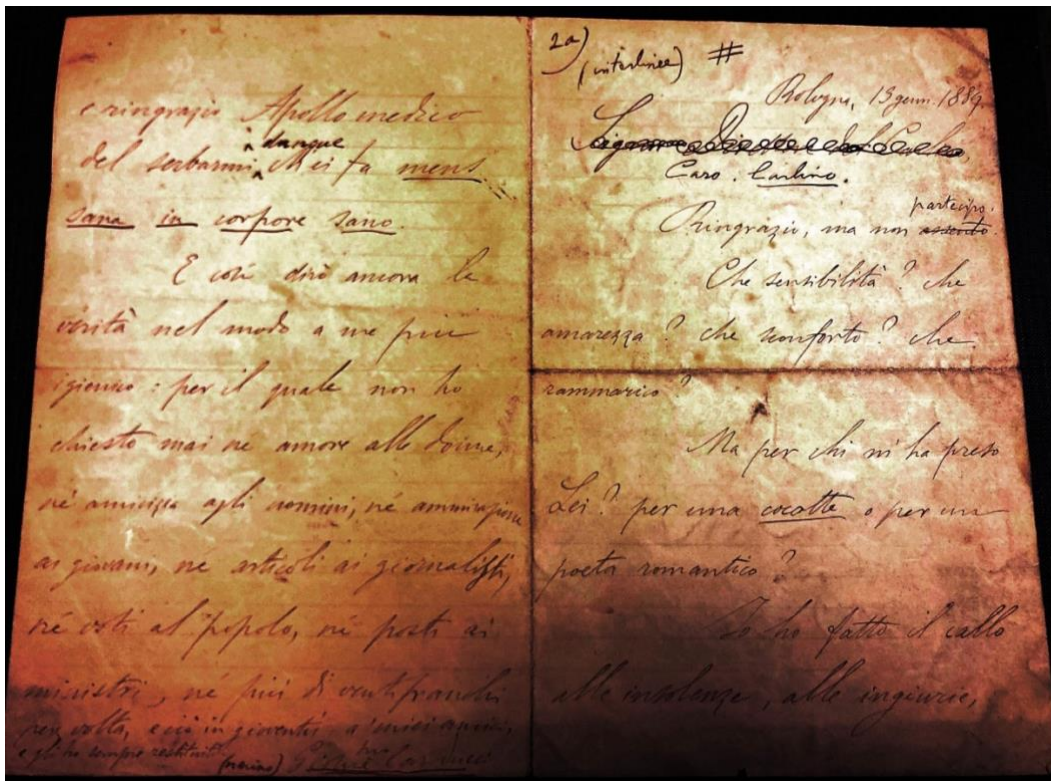 e ringrazio Apollo medico
dunque
del serbarmi Mei fa mens
sana in corpore sano.
E così dirò ancora la
verità nel modo a me più
igienico: per il quale non ho
chiesto mai né amore alle donne,
né amicizia agli uomini, né ammirazione
ai giovani, né articoli ai giornalisti,
né voti al popolo, né posti ai
ministri, né più di venti franchi
per volta, e ciò in gioventù a' miei amici,
e gli ho sempre restituiti
Carducci
2a)
(interlinea) #
Bologna, 15 genn. 1889.
Caro. Carlino.
partecipo.
Ringrazio, ma non
Che sensibilità? che
amarezza? che sconforto? che
rammarico?
Ma per chi mi ha preso
Lei? per una cocotte o per un
poeta romantico?
Io ho fatto il callo
alle insolenze, alle ingiurie,